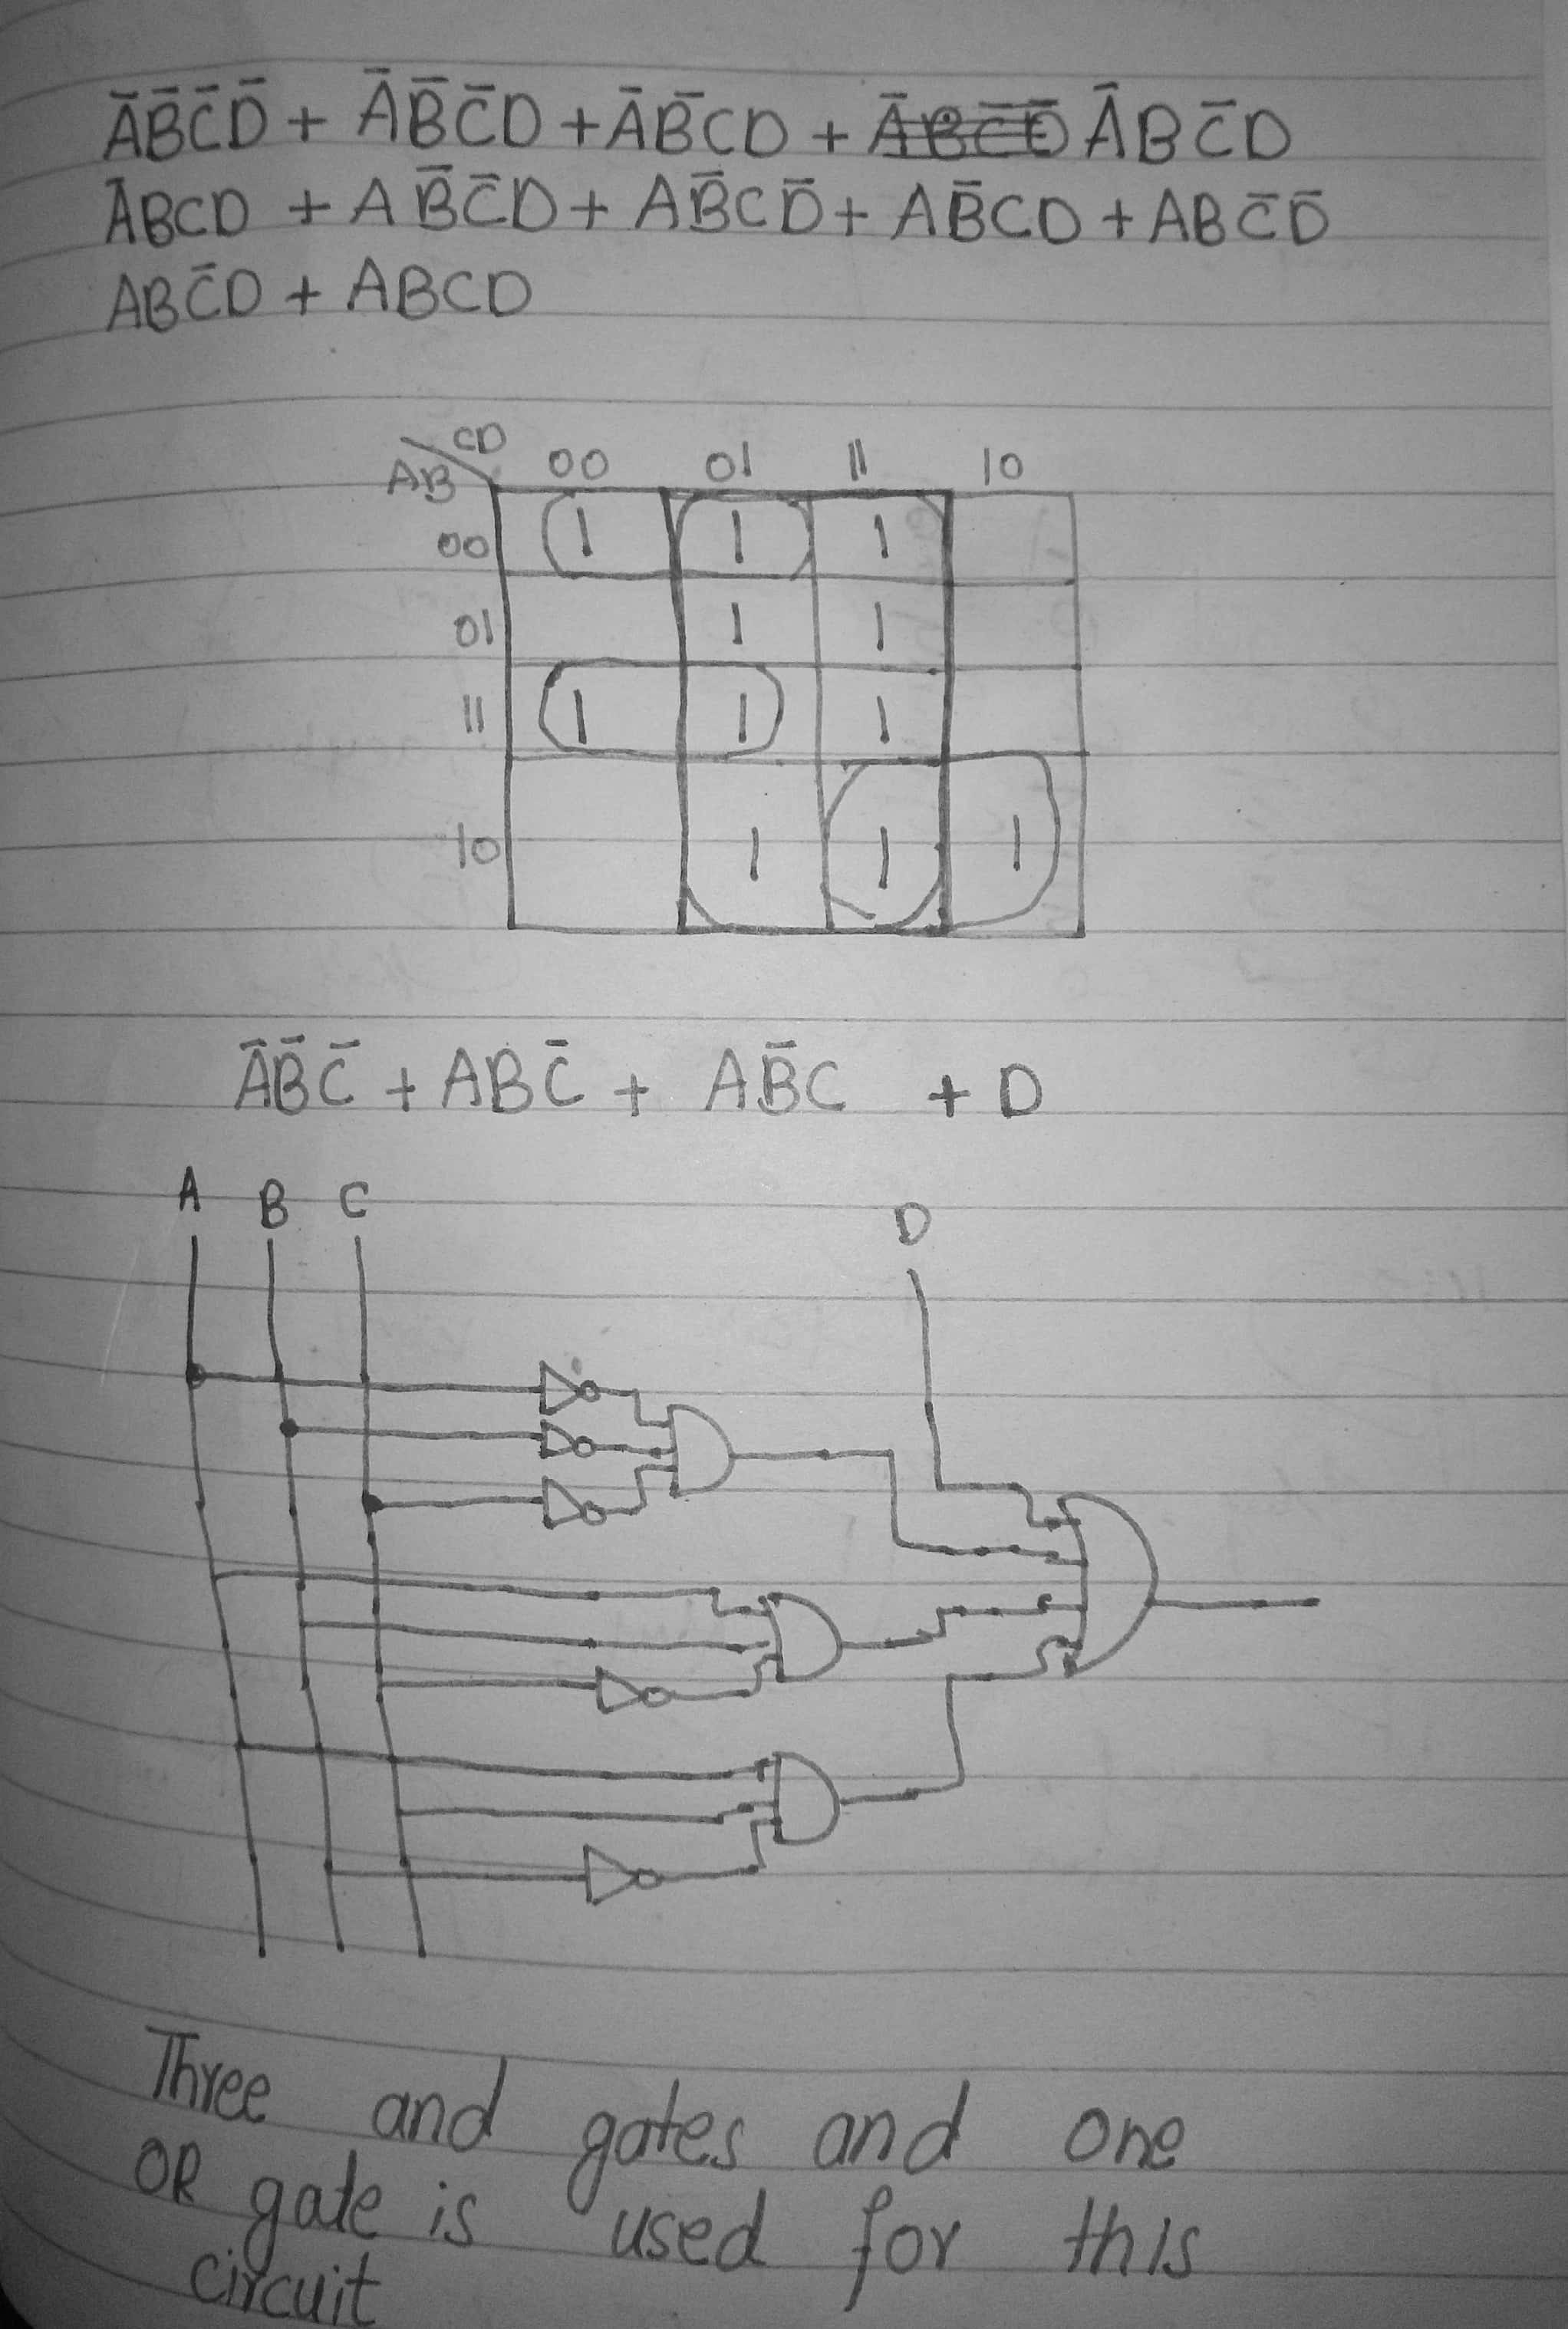 A̅B̅C̅D̅ + A̅B̅C̅D + A̅B̅CD + A̅BC̅D
A̅BCD + AB̅C̅D + AB̅CD̅ + AB̅CD + ABC̅D̅
ABC̅D + ABCD
CD
AB 00 01 11 10
00 1 1 1
01 1 1
11 1 1 1
10 1 1 1
A̅B̅C̅ + ABC̅ + AB̅C + D
A B C D
Three and gates and one
OR gate is used for this
circuit